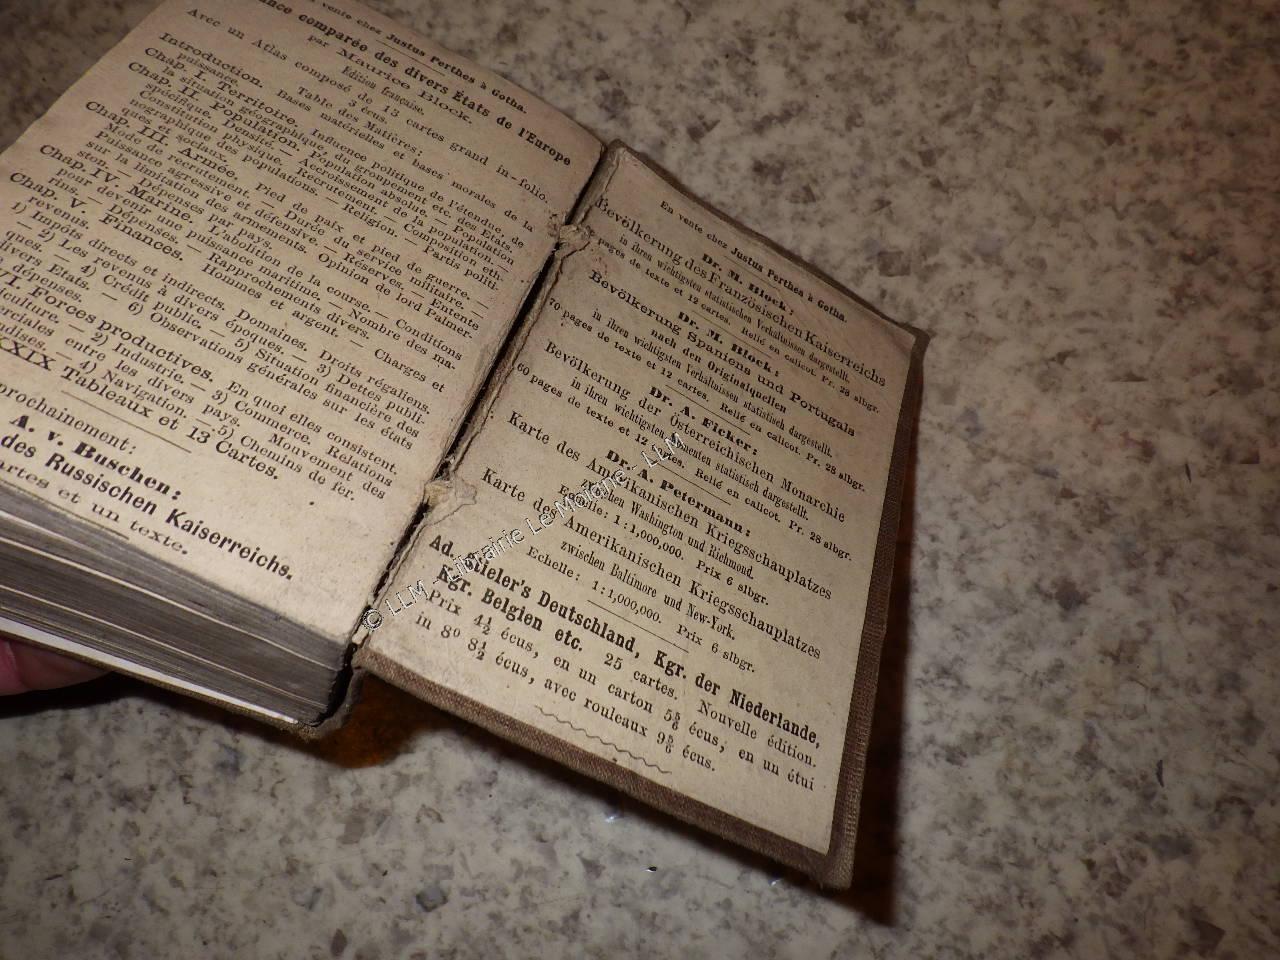 vente chez Justus Perthes à Gotha.
ance comparée des divers États de l'Europe
par Maurice Block.
Édition française.
Avec un Atlas composé de 13 cartes grand in-folio.
3 écus.
Table des Matières:
Introduction. Bases matérielles et bases morales de la
puissance.
Chap. I. Territoire. Influence politique de l'étendue, de
la situation géographique, du groupement etc. des États.
Chap. II. Population. Population absolue. — Population
spécifique. Densité. — Accroissement de la population. —
Constitution physique. — Recrutement. — Composition eth-
nographique des populations. — Religion. — Partis politi-
ques et sociaux.
Chap. III. Armée. Pied de paix et pied de guerre. —
Mode de recrutement. — Durée du service militaire. —
Puissance agressive et défensive. — Réserves. — Entente
sur la limitation des armements. Opinion de lord Palmer-
ston. — Dépenses par pays.
Chap. IV. Marine. L'abolition de la course. — Conditions
pour devenir une puissance maritime. — Nombre des ma-
rins. — Dépenses. — Rapprochements divers.
Chap. V. Finances. — Hommes et argent. — Charges et
revenus.
1) Impôts directs et indirects. Domaines. Droits régaliens.
— 2) Les revenus à divers époques. — 3) Dettes publi-
ques. — 4) Crédit public. — 5) Situation financière des
divers Etats. — 6) Observations générales sur les états
dépenses.
VI. Forces productives. En quoi elles consistent.
iculture. — 2) Industrie. — 3) Commerce. Relations
erciales entre les divers pays. Mouvement des
ndises. — 4) Navigation. — 5) Chemins de fer.
XXIX Tableaux et 13 Cartes.
prochainement:
A. v. Buschen:
des Russischen Kaiserreichs.
artes et un texte.
En vente chez Justus Perthes à Gotha.
Dr. M. Block:
Bevölkerung des Französischen Kaiserreichs
in ihren wichtigsten statistischen Verhältnissen dargestellt.
pages de texte et 12 cartes. Relié en calicot. Pr. 28 slbgr.
Dr. M. Block:
Bevölkerung Spaniens und Portugals
nach den Originalquellen
in ihren wichtigsten Verhältnissen statistisch dargestellt.
70 pages de texte et 12 cartes. Relié en calicot. Pr. 28 slbgr.
Dr. A. Ficker:
Bevölkerung der Österreichischen Monarchie
in ihren wichtigsten Momenten statistisch dargestellt.
60 pages de texte et 12 cartes. Relié en calicot. Pr. 28 slbgr.
Dr. A. Petermann:
Karte des Amerikanischen Kriegsschauplatzes
zwischen Washington und Richmond.
Echelle: 1:1,000,000. Prix 6 slbgr.
Karte des Amerikanischen Kriegsschauplatzes
zwischen Baltimore und New-York.
Echelle: 1:1,000,000. Prix 6 slbgr.
Ad. Stieler's Deutschland, Kgr. der Niederlande,
Kgr. Belgien etc. 25 cartes. Nouvelle édition.
Prix 4½ écus, en un carton 5⅚ écus, en un étui
in 8° 8½ écus, avec rouleaux 9⅚ écus.
© LLM - Librairie Le Moigne - LLM